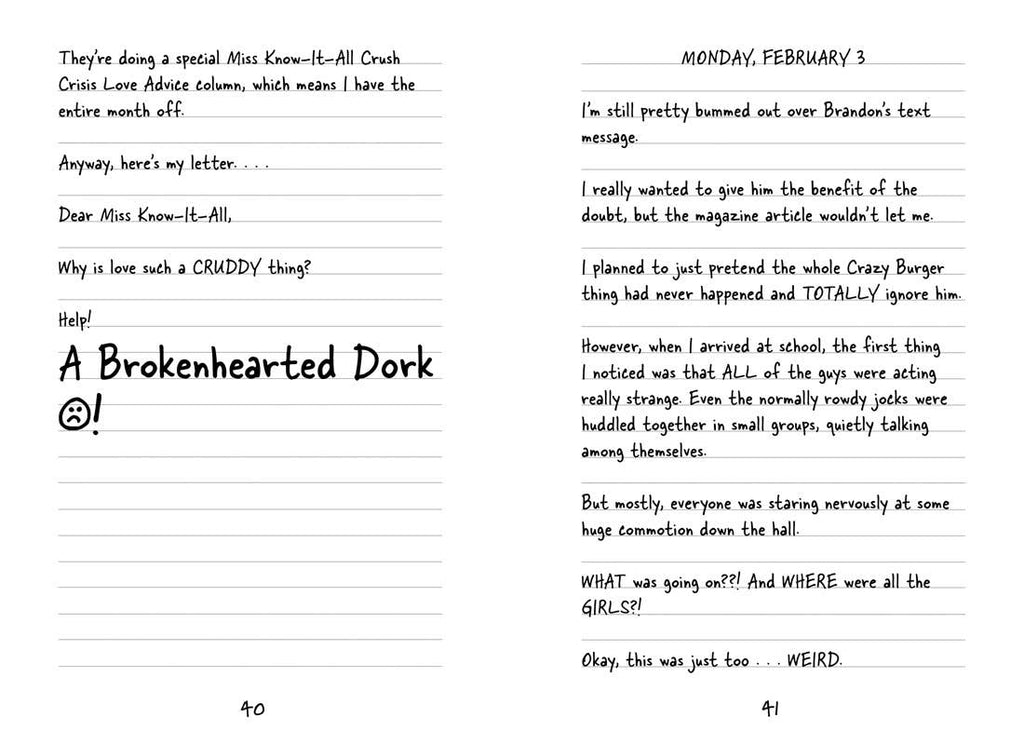 They're doing a special Miss Know-It-All Crush
Crisis Love Advice column, which means I have the
entire month off.
Anyway, here's my letter. . . .
Dear Miss Know-It-All,
Why is love such a CRUDDY thing?
Help!
A Brokenhearted Dork
☹!
40
MONDAY, FEBRUARY 3
I'm still pretty bummed out over Brandon's text
message.
I really wanted to give him the benefit of the
doubt, but the magazine article wouldn't let me.
I planned to just pretend the whole Crazy Burger
thing had never happened and TOTALLY ignore him.
However, when I arrived at school, the first thing
I noticed was that ALL of the guys were acting
really strange. Even the normally rowdy jocks were
huddled together in small groups, quietly talking
among themselves.
But mostly, everyone was staring nervously at some
huge commotion down the hall.
WHAT was going on??! And WHERE were all the
GIRLS?!
Okay, this was just too . . . WEIRD.
41